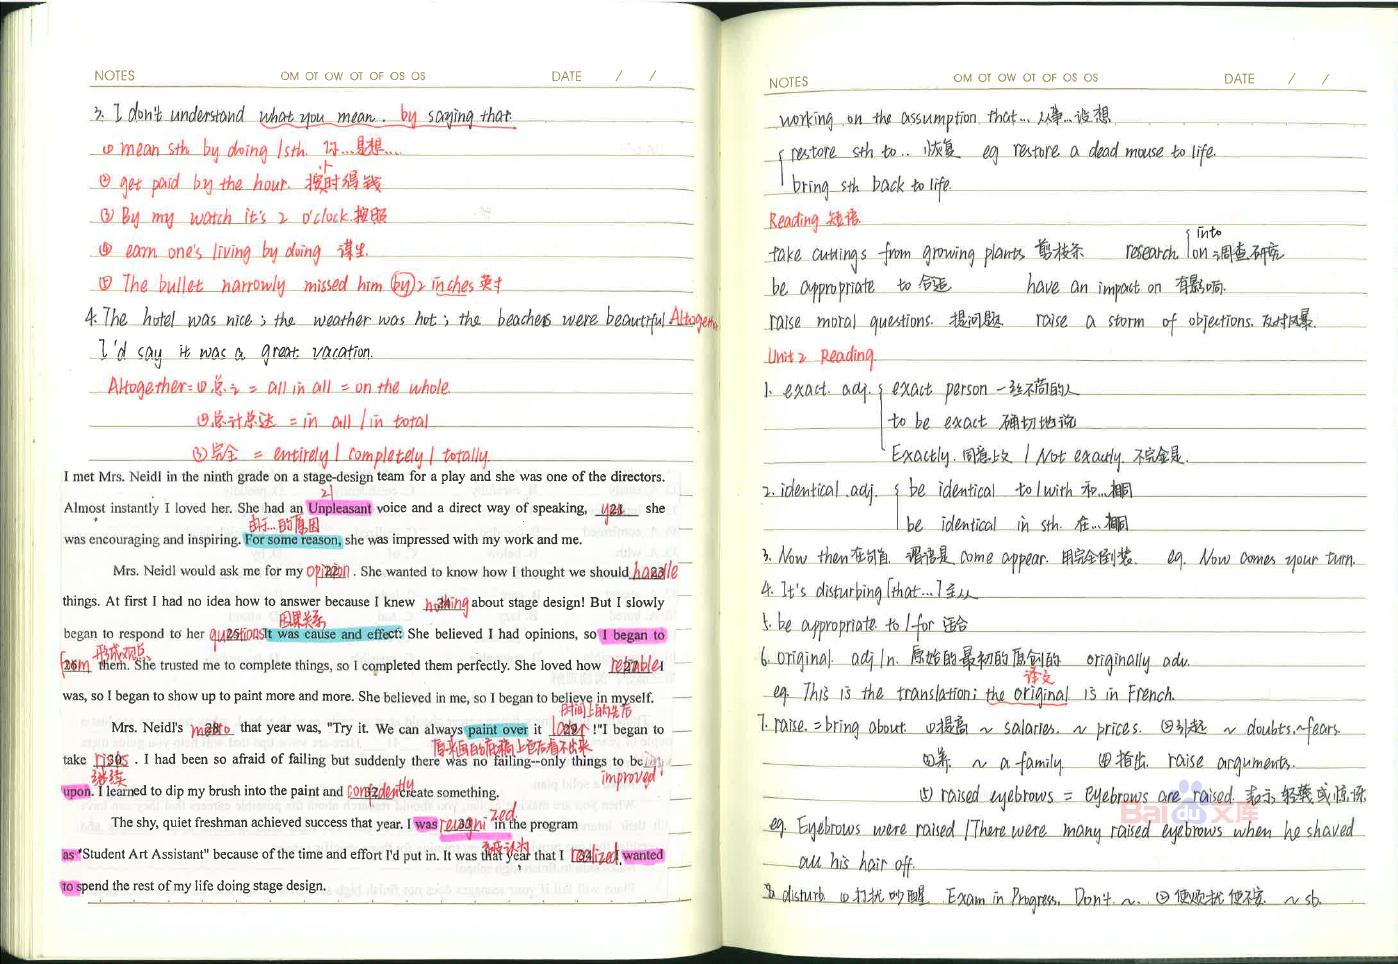 NOTES OM OT OW OT OF OS OS DATE / /
3. I don't understand what you mean. by saying that.
① mean sth by doing /sth. 你...是想....
② get paid by the hour. 按小时得钱
③ By my watch it's 2 o'clock.按照
④ earn one's living by doing 谋生.
⑤ The bullet narrowly missed him by 2 inches 英寸
4. The hotel was nice ; the weather was hot ; the beaches were beautiful. Altogether
I'd say it was a great vacation.
Altogether: ①总之 = all in all = on the whole.
②总计总达 = in all / in total
③完全 = entirely / completely / totally.
I met Mrs. Neidl in the ninth grade on a stage-design team for a play and she was one of the directors.
21
Almost instantly I loved her. She had an Unpleasant voice and a direct way of speaking, 21 yet she
由于...的原因
was encouraging and inspiring. For some reason, she was impressed with my work and me.
Mrs. Neidl would ask me for my 22 opinion. She wanted to know how I thought we should 23 handle
things. At first I had no idea how to answer because I knew 24 nothing about stage design! But I slowly
因果关系
began to respond to her 25 questions It was cause and effect: She believed I had opinions, so I began to
形成观点
26 form them. She trusted me to complete things, so I completed them perfectly. She loved how 27 reliable I
was, so I began to show up to paint more and more. She believed in me, so I began to believe in myself.
时间上的先后
Mrs. Neidl's 28 motto that year was, "Try it. We can always paint over it 29 later !"I began to
take 30 risks . I had been so afraid of failing but suddenly there was no failing--only things to be
improved
upon. I learned to dip my brush into the paint and 32 confidently create something.
The shy, quiet freshman achieved success that year. I was 33 recognized in the program
被认为
as "Student Art Assistant" because of the time and effort I'd put in. It was that year that I 34 realized wanted
to spend the rest of my life doing stage design.
NOTES OM OT OW OT OF OS OS DATE / /
working on the assumption that... 从事...设想
restore sth to.. 恢复 eg restore a dead mouse to life.
bring sth back to life.
Reading 短语.
into
take cuttings from growing plants 剪枝条 research on 调查研究
be appropriate to 合适 have an impact on 有影响.
raise moral questions. 提问题 raise a storm of objections. 反对风暴.
Unit 2 Reading.
1. exact. adj. exact person 一丝不苟的人
to be exact 确切地说
Exactly. 同意上文 / Not exactly. 不完全是.
2. identical. adj. be identical to / with 和...相同
be identical in sth. 在...相同
3. Now then 在句首. 谓语是 come appear. 用完全倒装. eg. Now comes your turn.
4. It's disturbing [that...] 主从
5. be appropriate to /-for 适合
6. original. adj / n. 原始的最初的原创的 originally adv.
译文
eg. This is the translation; the original is in French.
7. raise. = bring about. ①提高 ~ salaries. ~ prices. ②引起 ~ doubts.~fears.
③养. ~ a family. ④指出. raise arguments.
⑤ raised eyebrows = Eyebrows are raised. 表示轻蔑或惊讶.
Bai 文库
eg. Eyebrows were raised / There were many raised eyebrows when he shaved
all his hair off.
8. disturb. ①打扰吵醒 Exam in Progress. Don't ~. ②使烦扰使不安. ~ sb.